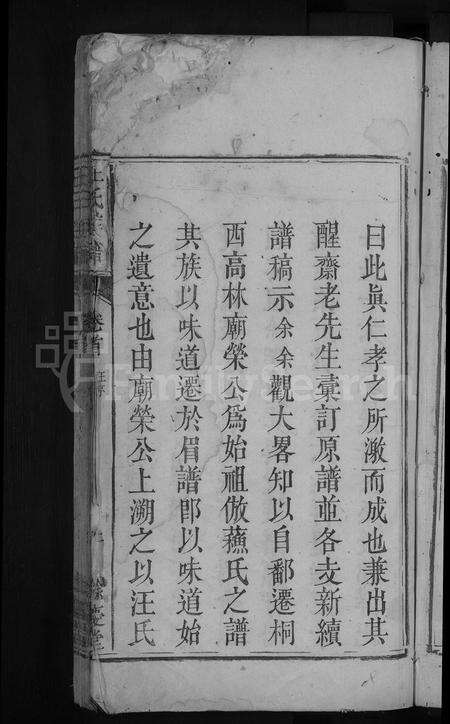 曰此眞仁孝之所激而成也兼出其
醒齋老先生彚訂原譜並各支新續
譜稿示余余觀大畧知以自鄱遷桐
西高林廟榮公爲始祖倣蘓氏之譜
其族以味道遷於眉譜卽以味道始
之遺意也由廟榮公上溯之以汪氏
氏宗譜
卷首
汪序
慶堂
FamilySearch